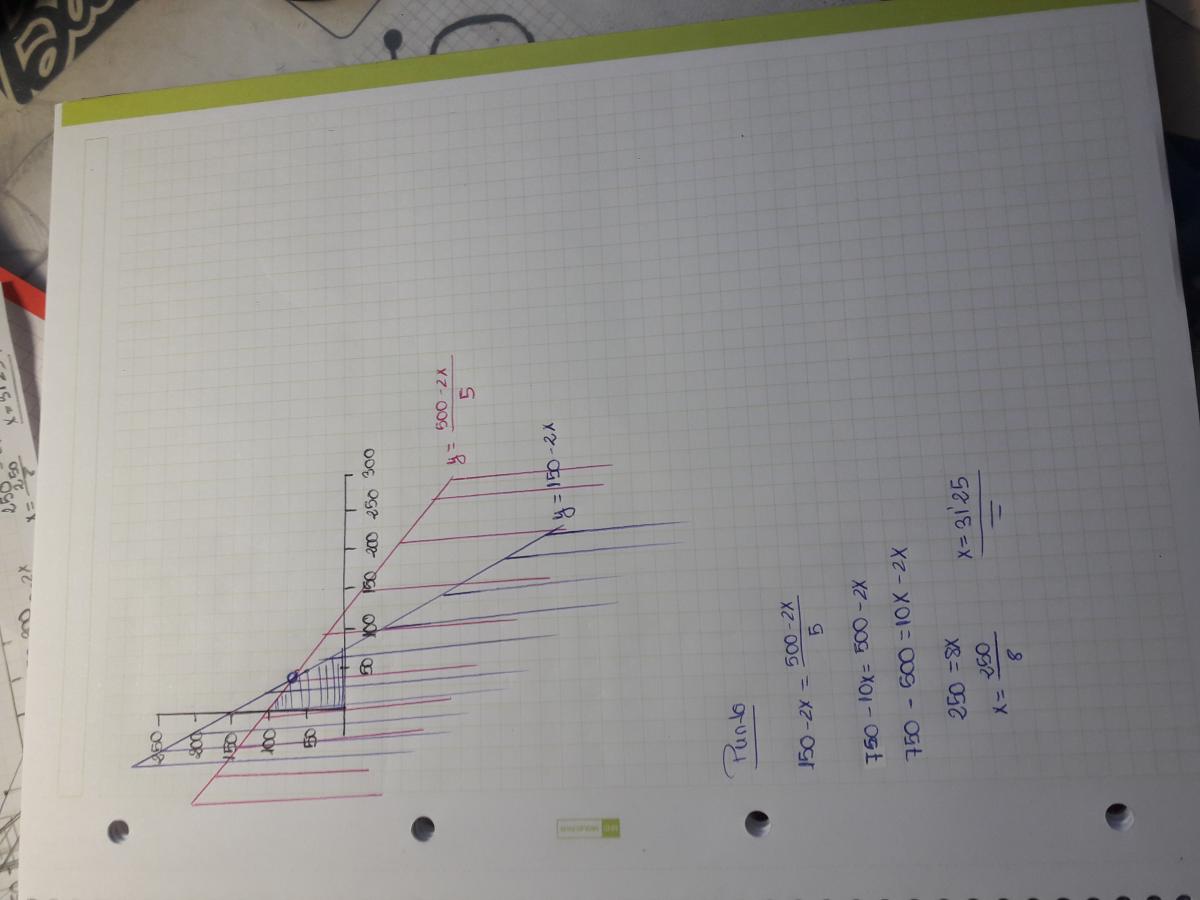 250
200
150
100
50
50
100
150
200
250
300
y = 500-2x
5
y = 150-2x
Punto
150-2x = 500-2x
5
750-10x = 500-2x
750-500 = 10x-2x
250 = 8x
x = 250
8
x = 31'25